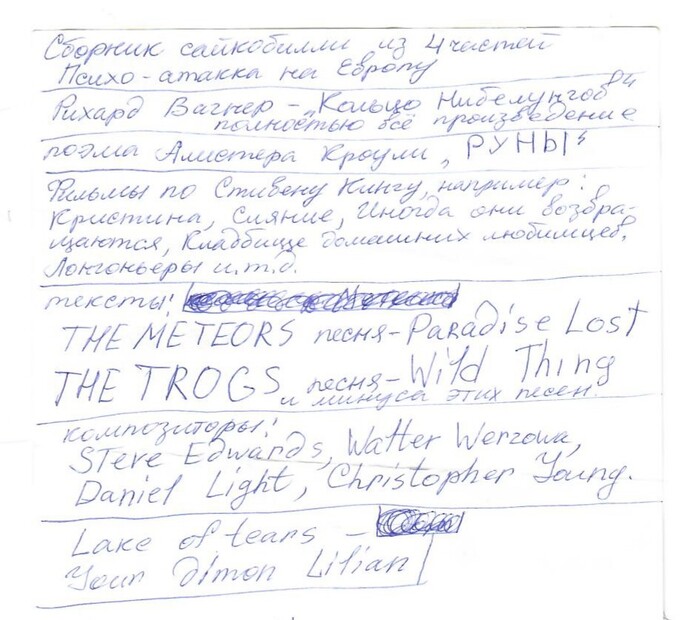 Сборник сайкобилли из 4 частей
Психо-атакка на Европу
Рихард Вагнер - „Кольцо Нибелунгов"
полностью всё произведение
поэма Алистера Кроули, „РУНЫ“
Фильмы по Стивену Кингу, например:
Кристина, Сияние, Иногда они возвра-
щаются, Кладбище домашних любимцев,
Лонгоньеры и.т.д.
тексты:
THE METEORS песня-Paradise Lost
THE TROGS песня-Wild Thing
и минуса этих песен.
композиторы:
Steve Edwards, Walter Werzowa,
Daniel Light, Christopher Young.
Lake of tears -
Your dimon Lilian